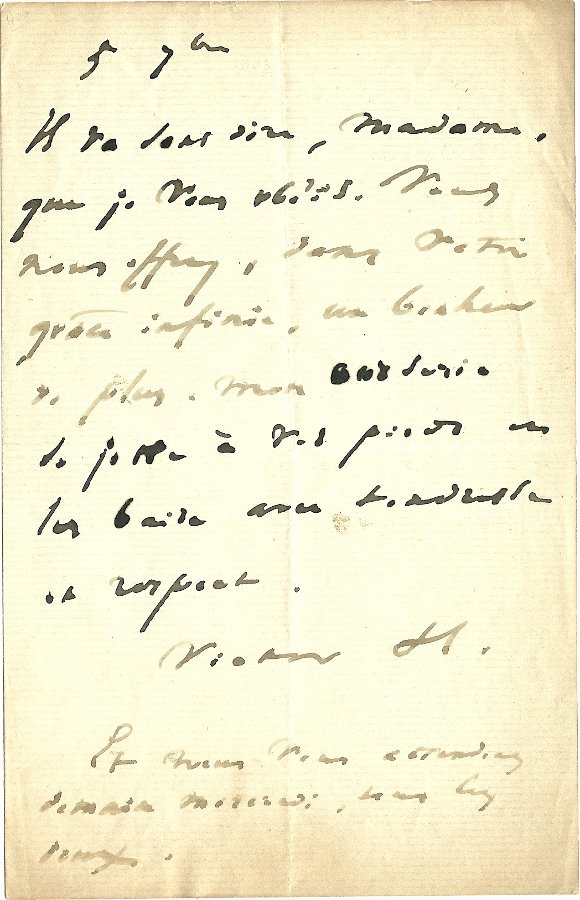 5 7bre
Il va sans dire, Madame,
que je vous obéis. Vous
nous offrez, dans votre
grâce infinie, un bonheur
de plus. Mon
se jette à vos pieds et
les baise avec tendresse
et respect.
Victor H.
Et nous vous attendons
demain mercredi, tous les
deux.